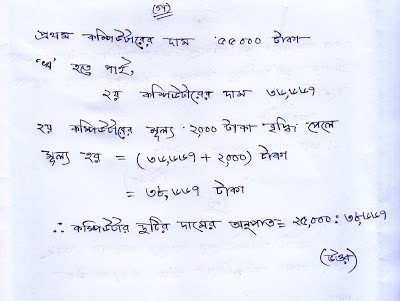 (গ)
প্রথম কম্পিউটারের দাম ৫৫০০০ টাকা
'খ' হতে পাই,
২য় কম্পিউটারের দাম ৩৬,৬৬৭
২য় কম্পিউটারের মূল্য ২,০০০ টাকা বৃদ্ধি পেলে
মূল্য হয় = (৩৬,৬৬৭ + ২,০০০) টাকা
= ৩৮,৬৬৭ টাকা
∴ কম্পিউটার দুটির দামের অনুপাত = ২৫,০০০ : ৩৮,৬৬৭
(উত্তর)